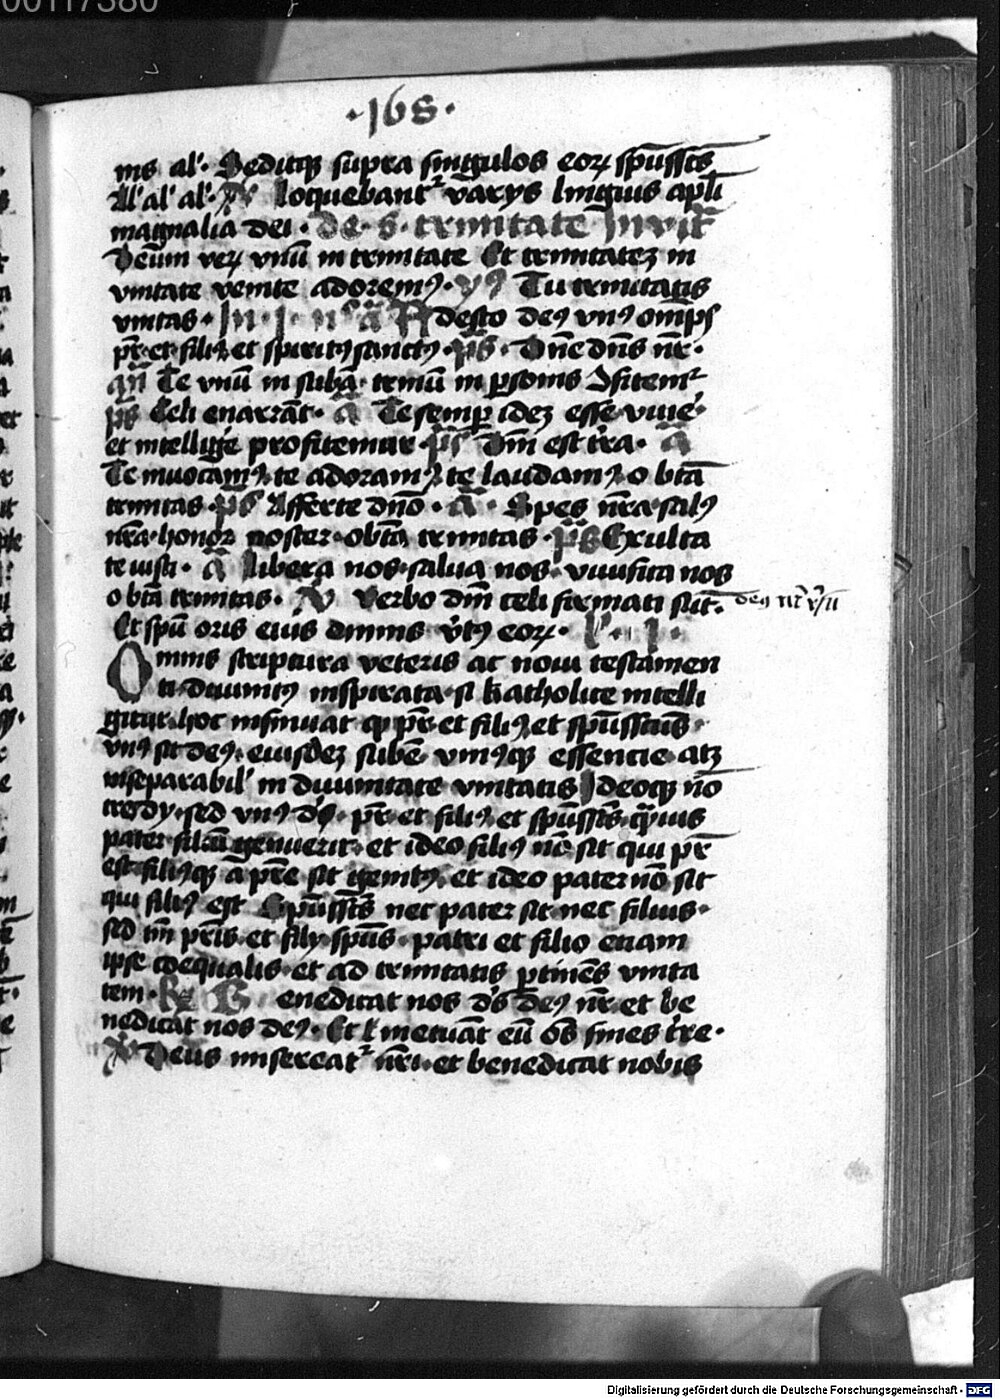 00117380
·168·
nis al'· Seditq₃ supra singulos eoꝝ spūssctꝰ
All' al' al'· ℣ Loquebantᵘʳ varijs linguis apl̄i
magnalia dei · de · s · trinitate Invit̄
Deum veꝝ vnū in trinitate Et trinitatez in
vnitate venite adoremꝰ · vꝰ Tu trinitatis
vnitas · In · j · n° ā Adesto deꝰ vnꝰ omp̄s
pr̄ et filiꝰ et spiritꝰ sanctꝰ · p̄s · Dn̄e dn̄s nr̄ ·
Te vnū in subā · trinū in ꝑsonis 9fitemᵘʳ
p̄s Celi enarrāt · ā Te semꝑ idez esse viuē'
et intelligē profitemur · p̄s Dn̄i est t'ra · ā
Te inuocamꝰ te adoramꝰ te laudamꝰ o btā
trinitas · p̄s Afferte dn̄o · ā · Spes nr̄a salꝰ
nr̄a · honor noster · o btā trinitas · p̄s Exulta
te iusti · ā libera nos · salua nos · viuifica nos
o btā trinitas · ℣ Verbo dn̄i celi firmati sūt ·
Et spū oris eius omnis v̄tꝰ eoꝝ · l · j ·
Omnis scriptura veteris ac noui testamen
ti diuinitꝰ inspirata · si katholice intelli
gitur hoc insinuat ꝙ pr̄ et filiꝰ et spūssctūs ·
vnꝰ sit deꝰ · eiusdez subē vniꝰq₃ essencie atq₃
inseparabil' in diuinitate vnitatis Ideoq₃ nō
tres dij · sed vnꝰ d's · pr̄ et filiꝰ et spūssctꝰ · q̄uis
pater filiū genuerit · et ideo filiꝰ nō sit qui pr̄
est · filiꝰq₃ a pr̄e sit genitꝰ · et ideo pater nō sit
qui filiꝰ est Spūssctꝰ nec pater sit nec filius ·
sed tm̄ pr̄is et filij spūs · patri et filio etiam
ipse coequalis · et ad trinitatis ꝑtinēs vnita
tem · ℞ Benedicat nos d's deꝰ nr̄ et be
nedicat nos deꝰ · Et metuāt eū ōs fines t're ·
℣ Deus misereatᵘʳ nr̄i · et benedicat nobis
Digitalisierung gefördert durch die Deutsche Forschungsgemeinschaft · DFG